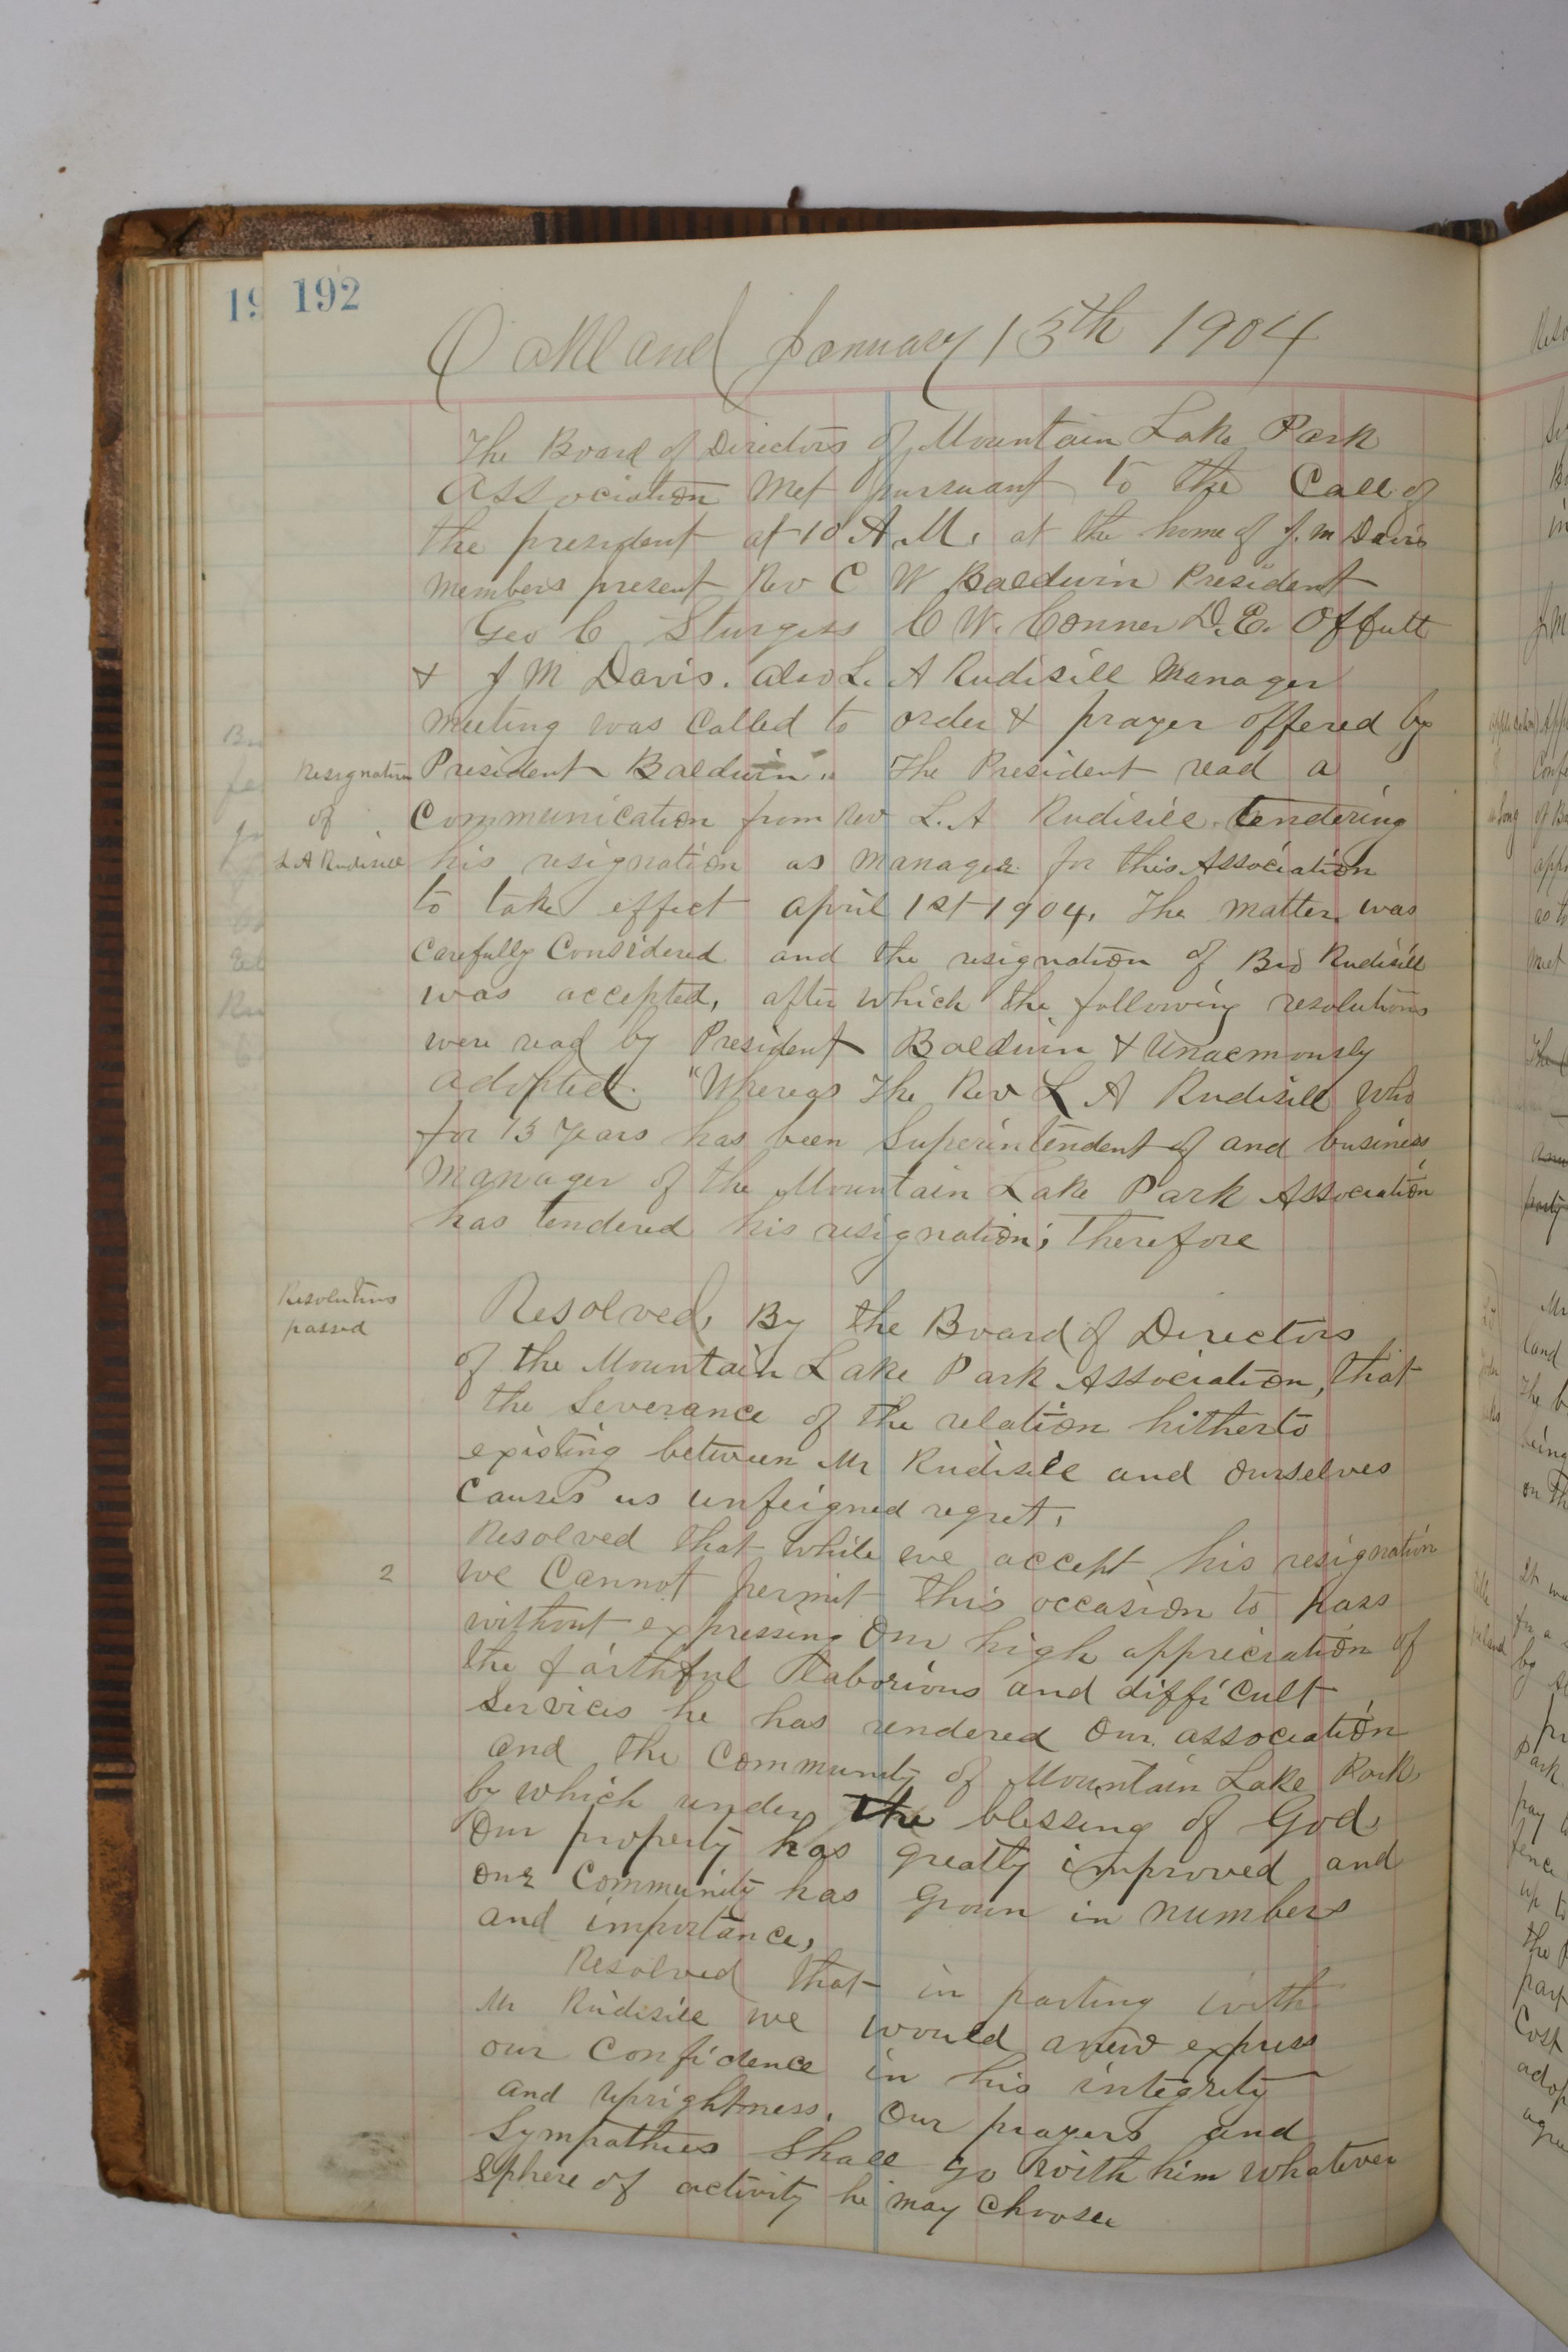 192
Oakland January 15th 1904
The Board of Directors of Mountain Lake Park
Association Met pursuant to the Call of
the president at 10 A.M. at the home of J. M Davis
Members present Rev C W Baldwin President
Geo C Sturgiss C W. Conner D. E. Offutt
& J M Davis. also L. A Rudisill Manager
meeting was Called to order & prayer offered by
Resignation President Baldwin. The President read a
of Communication from Rev L. A Rudisill tendering
L A Rudisill his resignation as Manager for this Association
to take effect april 1st 1904. The matter was
Carefully Considered and the resignation of Bro Rudisill
was accepted, after which the following resolutions
were read by President Baldwin & Unaemously
adopted. "Whereas The Rev L A Rudisill who
for 15 years has been Superintendent of and business
Manager of the Mountain Lake Park Association
has tendered his resignation; Therefore
Resolutions
passed
Resolved, By the Board of Directors
of the Mountain Lake Park Association, that
the Severance of the relation hitherto
existing between Mr Rudisill and Ourselves
Causes us unfeigned regret.
Resolved that while we accept his resignation
2 we Cannot permit this occasion to pass
without expressing Our high appreciation of
the faithful laborious and difficult
Services he has rendered Our association
and the Community of Mountain Lake Park
by which under the blessing of God
Our property has greatly improved and
our Community has grown in numbers
and importance,
Resolved that in parting with
Mr Rudisill we would anew express
our Confidence in his integrity
and uprightness. Our prayers and
Sympathies Shall go with him whatever
Sphere of activity he may choose